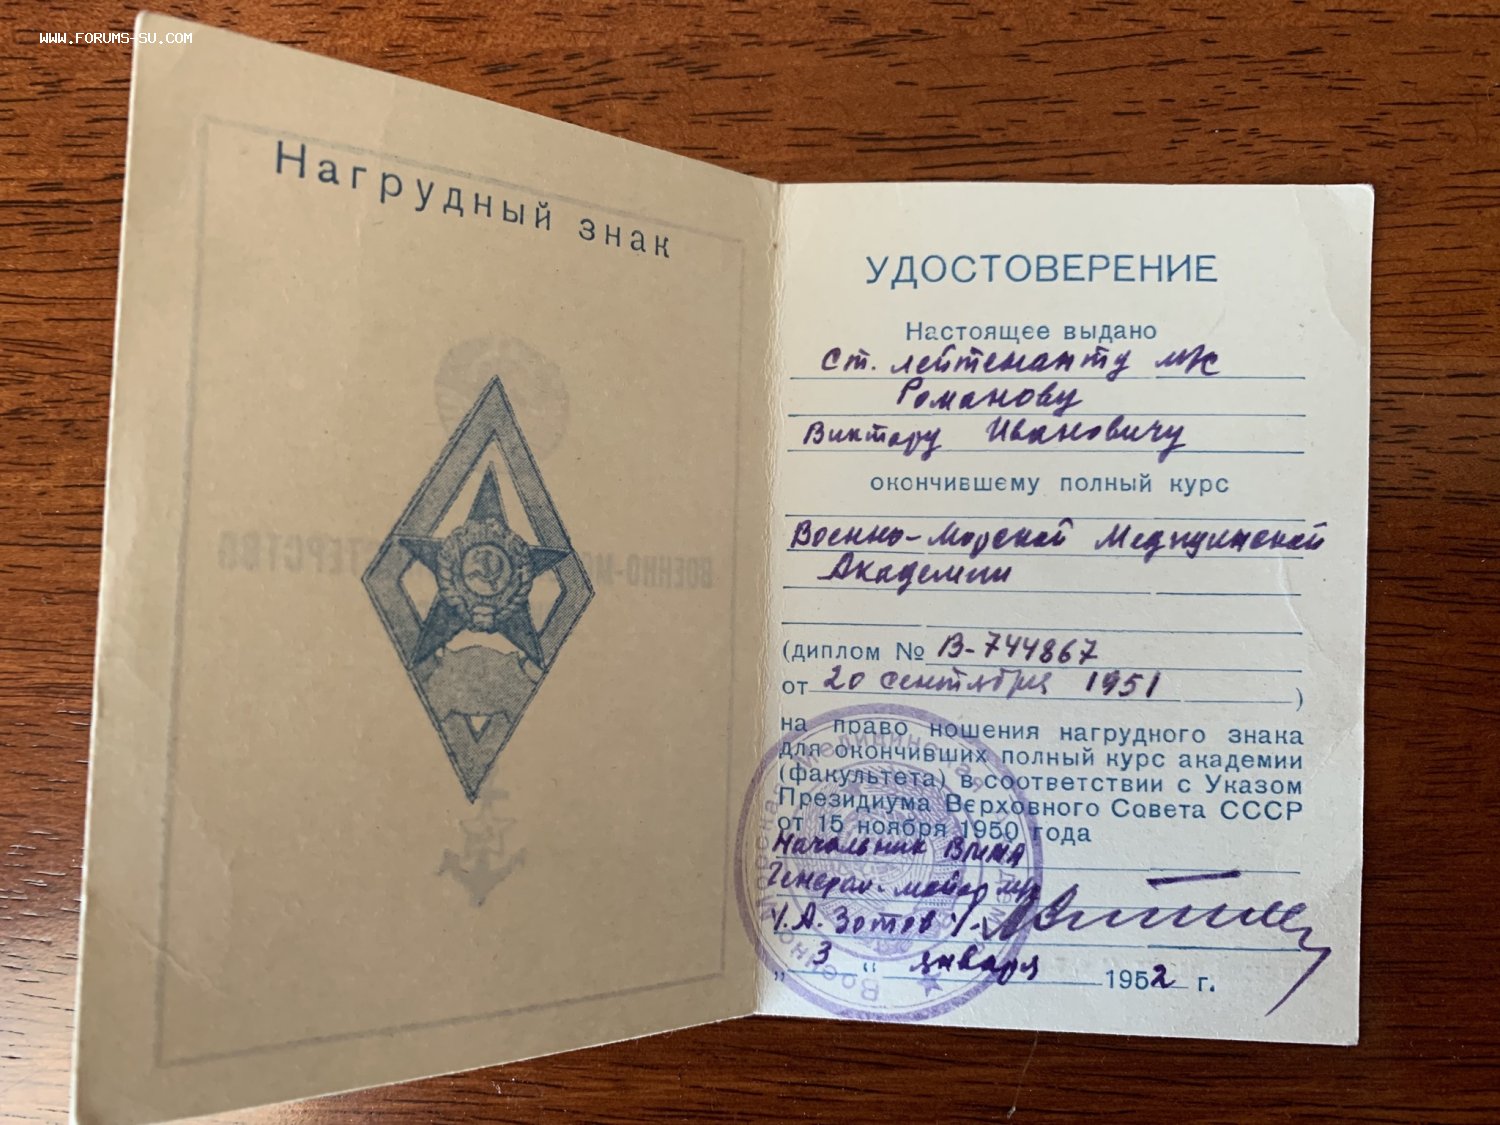 WWW.FORUMS-SU.COM
Нагрудный знак
УДОСТОВЕРЕНИЕ
Настоящее выдано
Ст. лейтенанту м/с
Романову
Виктору Ивановичу
окончившему полный курс
Военно-Морской Медицинской
Академии
(диплом № В-744867
от 20 сентября 1951)
на право ношения нагрудного знака
для окончивших полный курс академии
(факультета) в соответствии с Указом
Президиума Верховного Совета СССР
от 15 ноября 1950 года
Начальник ВММА
Генерал-майор м/с
/.А. Зотов /-
„ 3 “ января 1952 г.